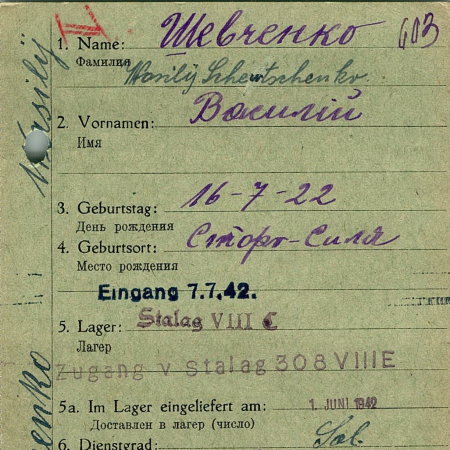 1. Name: Шевченко 403
Фамилия Wasilij Schewtschenko
2. Vornamen: Василій
Имя
Wasilij
3. Geburtstag: 16-7-22
День рождения
4. Geburtsort: Сторо-Силя
Место рождения
Eingang 7.7.42.
5. Lager: Stalag VIII C
Лагер
Zugang v Stalag 308 VIII E
5a. Im Lager eingeliefert am: 1. JUNI 1942
Доставлен в лагер (число)
6. Dienstgrad: Sol.
enko